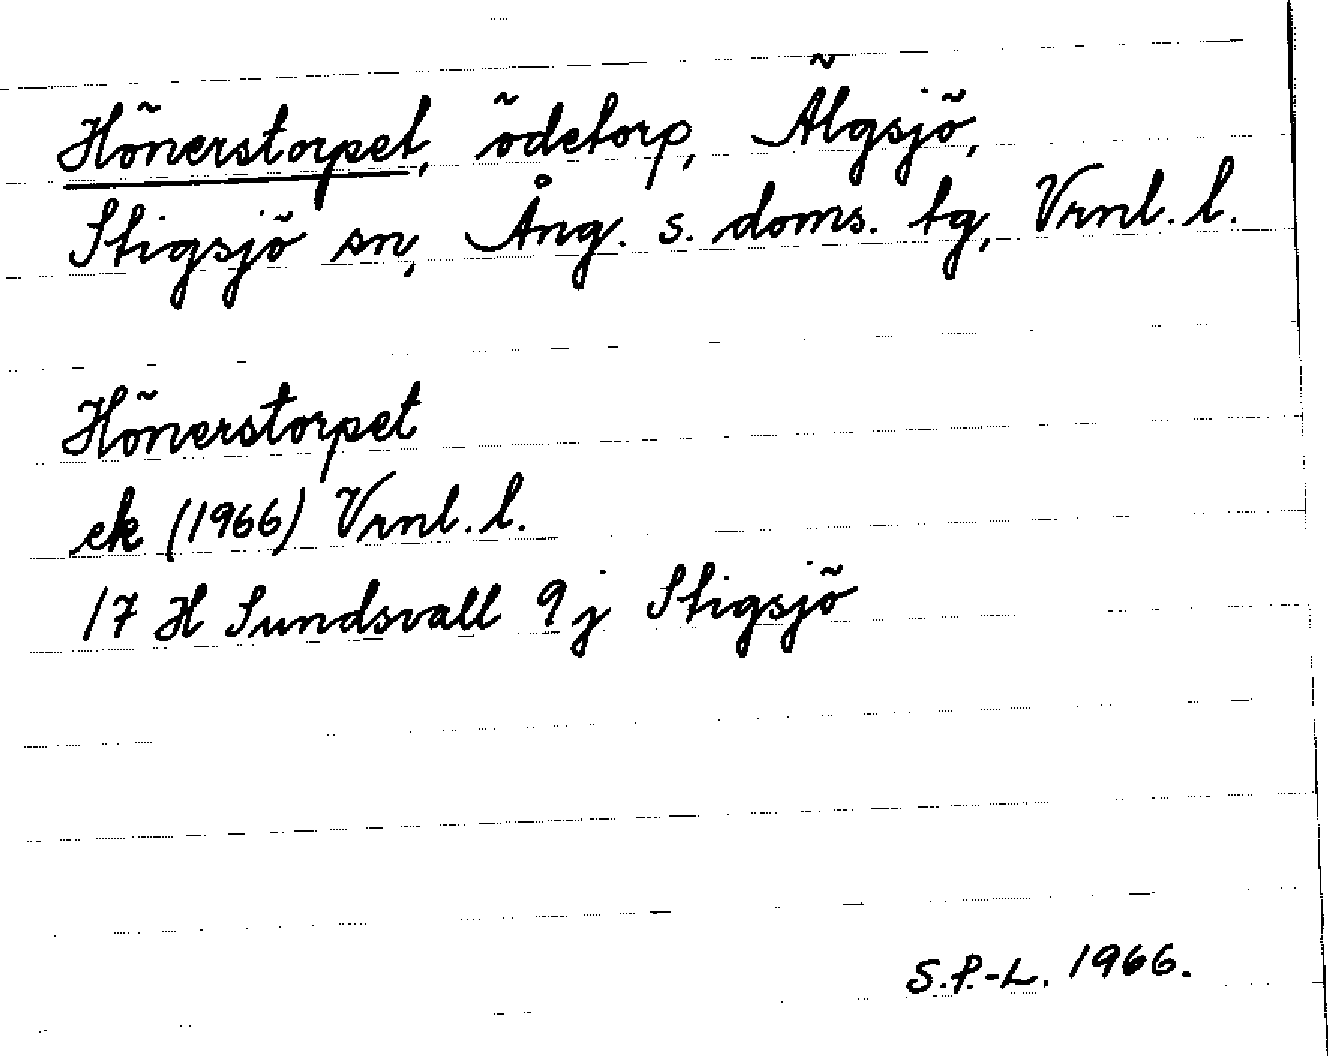 Hönerstorpet, ödetorp, Älgsjö,
Stigsjö sn, Ång. s. doms. tg, Vrnl. l.
Hönerstorpet
ek (1966) Vrnl. l.
17 H Sundsvall 9 j Stigsjö
S.P.-L. 1966.